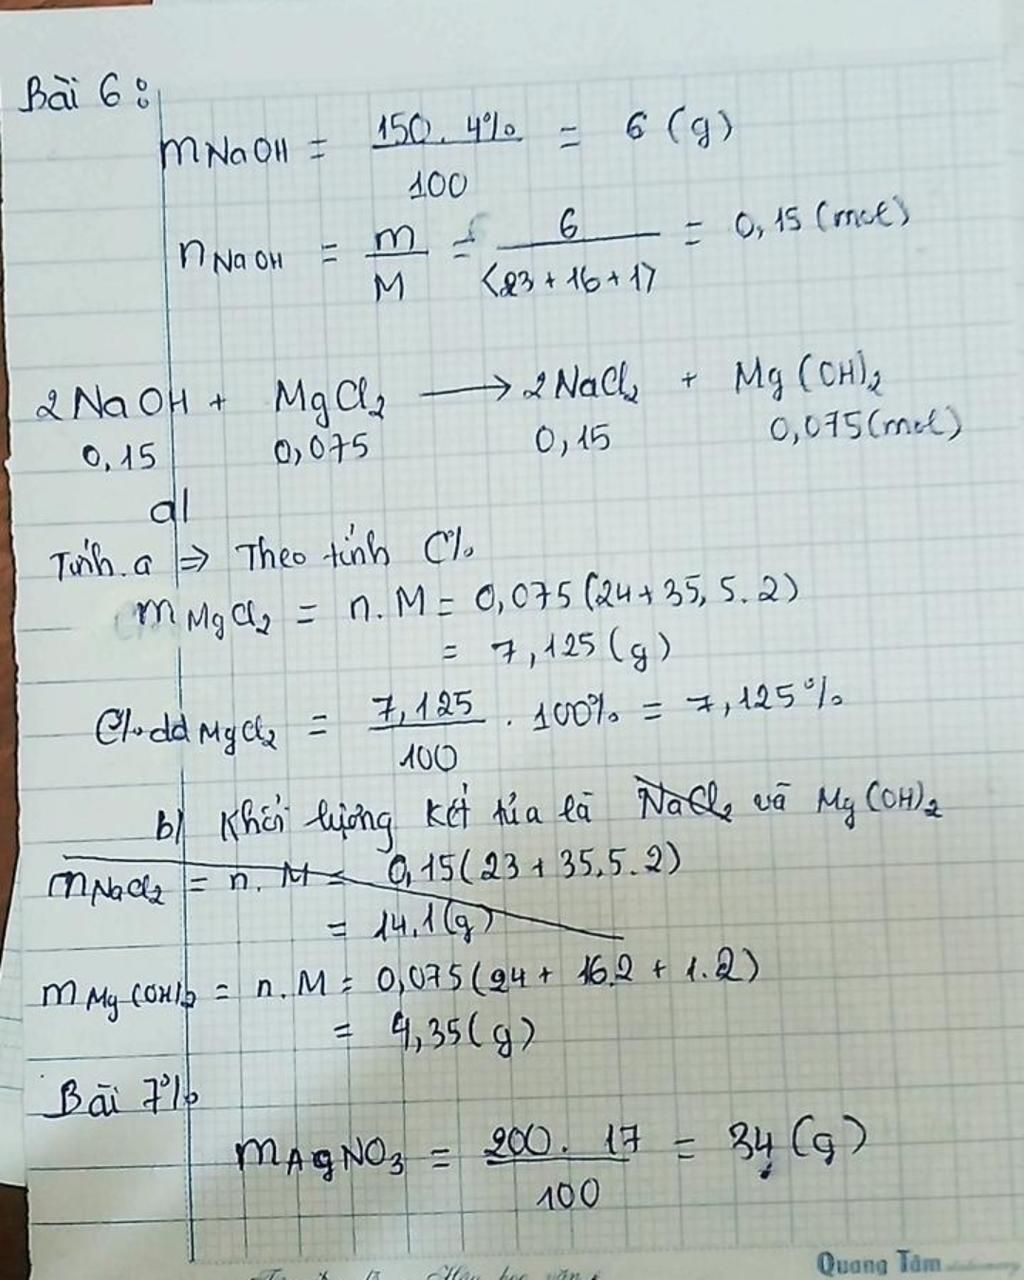 Bài 6:
mNaOH = 150. 4% / 100 = 6 (g)
nNaOH = m / M = 6 / (23 + 16 + 17 = 0,15 (mol)
2NaOH + MgCl2 ⟶ 2NaCl2 + Mg(OH)2
0,15 0,075 0,15 0,075 (mol)
a/
Tính a ⇒ Theo tính C%
mMgCl2 = n. M = 0,075 (24 + 35,5.2)
= 7,125 (g)
C% dd MgCl2 = 7,125 / 100 . 100% = 7,125%
b/ Khối lượng kết tủa là NaCl2 và Mg(OH)2
mNaCl2 = n. M = 0,15 (23 + 35,5.2)
= 14,1 (g)
mMg(OH)2 = n. M = 0,075 (24 + 16.2 + 1.2)
= 4,35 (g)
Bài 7%
mAgNO3 = 200. 17 / 100 = 34 (g)
Quang Tâm